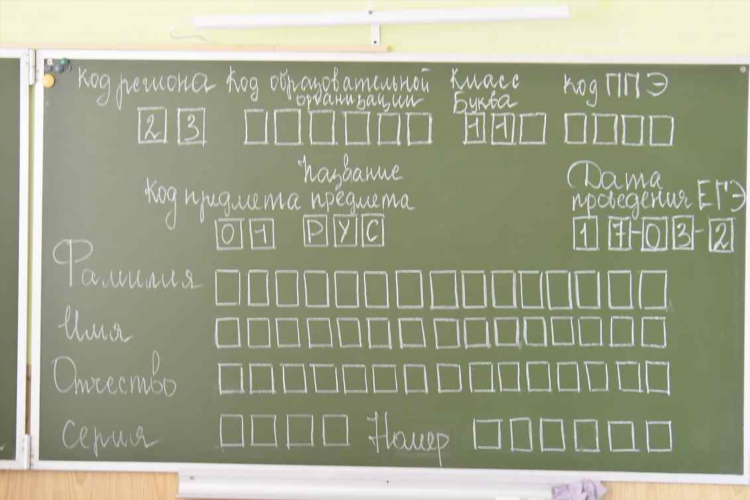 Код региона Код образовательной организации Класс Буква Код ППЭ
23 11
Код предмета Название предмета Дата проведения ЕГЭ
01 РУС 17-03-2
Фамилия
Имя
Отчество
Серия Номер